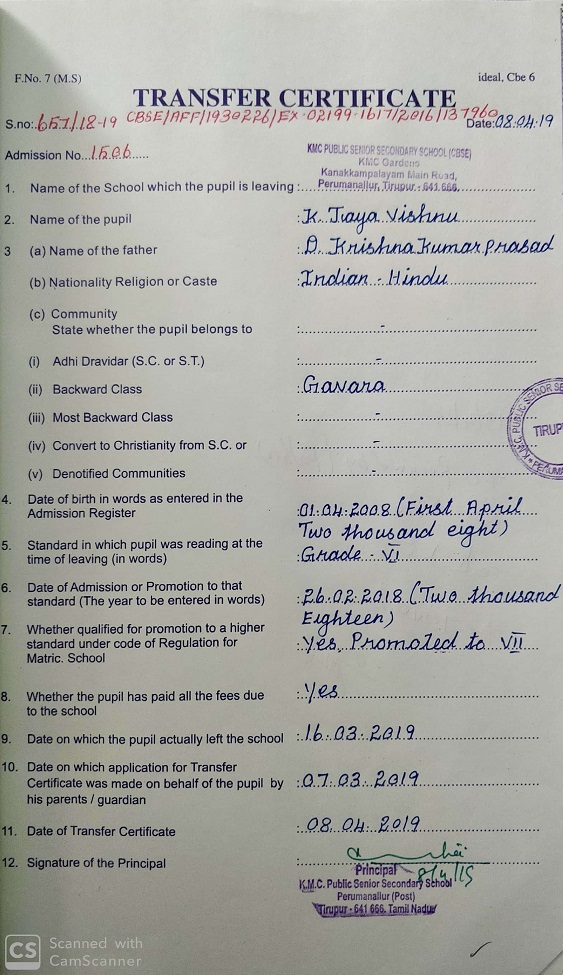 F.No. 7 (M.S)
ideal, Cbe 6
TRANSFER CERTIFICATE
S.no: 657/18-19 CBSE/AFF/1930226/EX-02199-1617/2016/137960 Date: 08.04.19
Admission No. 1506
KMC PUBLIC SENIOR SECONDARY SCHOOL (CBSE)
KMC Gardens
Kanakkampalayam Main Road,
1. Name of the School which the pupil is leaving : Perumanallur, Tirupur - 641 666.
2. Name of the pupil : K. Jaya Vishnu
3 (a) Name of the father : D. Krishna Kumar Prasad
(b) Nationality Religion or Caste : Indian - Hindu
(c) Community
State whether the pupil belongs to : -
(i) Adhi Dravidar (S.C. or S.T.) : -
(ii) Backward Class : Gavara
(iii) Most Backward Class : -
(iv) Convert to Christianity from S.C. or : -
(v) Denotified Communities : -
K.M.C. PUBLIC SENIOR SE
TIRUP
PERUMA
4. Date of birth in words as entered in the
Admission Register : 01.04.2008 (First April
Two thousand eight)
5. Standard in which pupil was reading at the
time of leaving (in words) : Grade - VI
6. Date of Admission or Promotion to that
standard (The year to be entered in words) : 26.02.2018 (Two thousand
Eighteen)
7. Whether qualified for promotion to a higher
standard under code of Regulation for : Yes, Promoted to VII
Matric. School
8. Whether the pupil has paid all the fees due : Yes
to the school
9. Date on which the pupil actually left the school : 16.03.2019
10. Date on which application for Transfer
Certificate was made on behalf of the pupil by : 07.03.2019
his parents / guardian
11. Date of Transfer Certificate : 08.04.2019
12. Signature of the Principal :
Principal
K.M.C. Public Senior Secondary School
Perumanallur (Post)
Tirupur - 641 666. Tamil Nadu
CS Scanned with
CamScanner